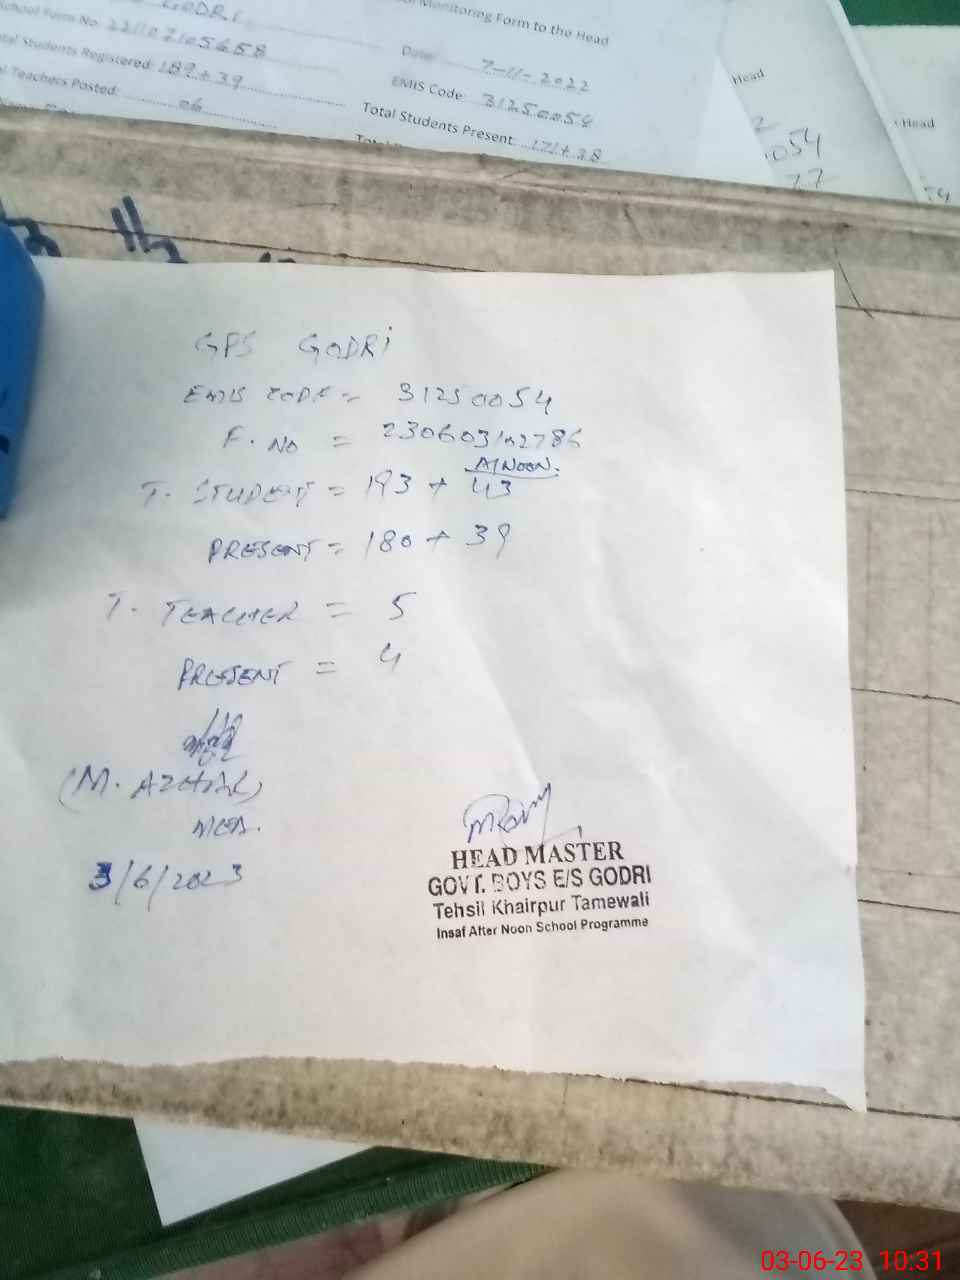 GODRI
School Form No. 221102105658
Total Students Registered: 189+39
Teachers Posted: 06
Monitoring Form to the Head
Date: 7-11-2022
EMIS Code: 31250054
Total Students Present: 171+38
Head
054
77
Head
54
GPS GODRi
EMIS CODE = 31250054
F. NO = 230603102786
A/NOON.
T. STUDENT = 193 + 43
PRESENT = 180 + 39
T. TEACHER = 5
PRESENT = 4
(M. AZHAR)
MEA.
3/6/2023
HEAD MASTER
GOVT. BOYS E/S GODRI
Tehsil Khairpur Tamewali
Insaf After Noon School Programme
03-06-23 10:31